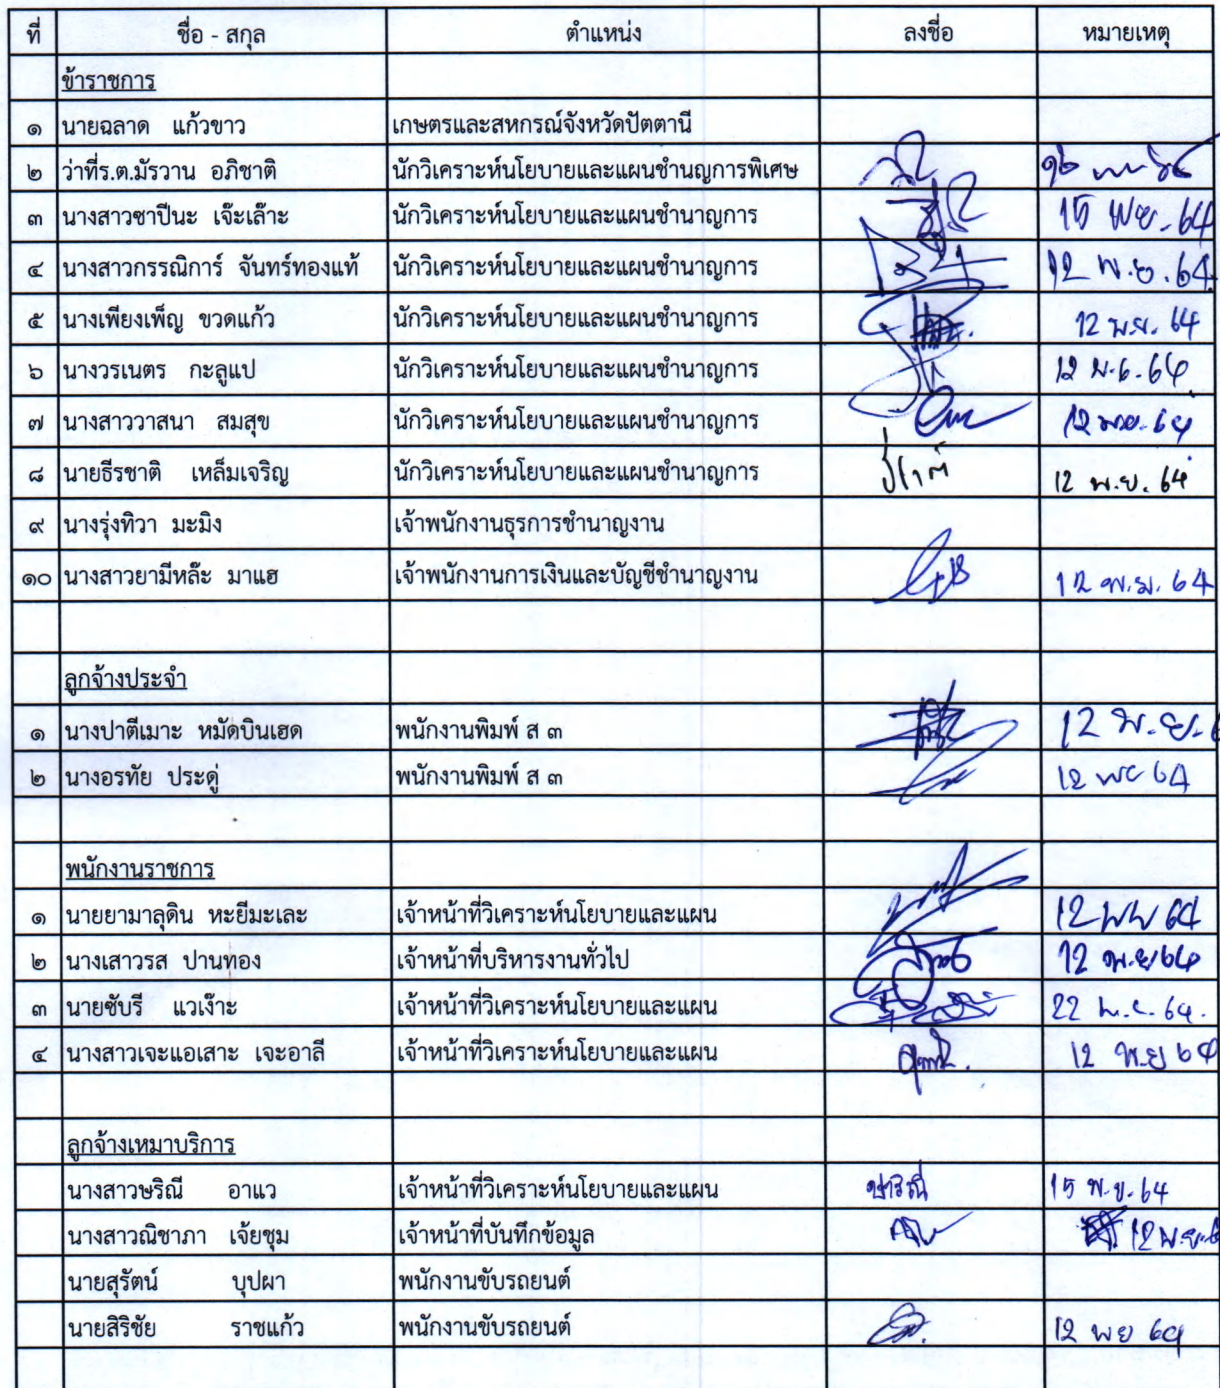 ที่ ชื่อ - สกุล ตำแหน่ง ลงชื่อ หมายเหตุ
ข้าราชการ
๑ นายฉลาด แก้วขาว เกษตรและสหกรณ์จังหวัดปัตตานี
๒ ว่าที่ร.ต.มัรวาน อภิชาติ นักวิเคราะห์นโยบายและแผนชำนญการพิเศษ
๓ นางสาวซาปีนะ เจ๊ะเล๊าะ นักวิเคราะห์นโยบายและแผนชำนาญการ 15 พย. 64
๔ นางสาวกรรณิการ์ จันทร์ทองแท้ นักวิเคราะห์นโยบายและแผนชำนาญการ 12 พ.ย. 64
๕ นางเพียงเพ็ญ ขวดแก้ว นักวิเคราะห์นโยบายและแผนชำนาญการ 12 พ.ย. 64
๖ นางวรเนตร กะลูแป นักวิเคราะห์นโยบายและแผนชำนาญการ 12 พ.ย. 64
๗ นางสาววาสนา สมสุข นักวิเคราะห์นโยบายและแผนชำนาญการ 12 พย. 64
๘ นายธีรชาติ เหล็มเจริญ นักวิเคราะห์นโยบายและแผนชำนาญการ 12 พ.ย. 64
๙ นางรุ่งทิวา มะมิง เจ้าพนักงานธุรการชำนาญงาน
๑๐ นางสาวยามีหล๊ะ มาแฮ เจ้าพนักงานการเงินและบัญชีชำนาญงาน 12 พ.ย. 64
ลูกจ้างประจำ
๑ นางปาตีเมาะ หมัดบินเฮด พนักงานพิมพ์ ส ๓ 12 พ.ย.
๒ นางอรทัย ประดู่ พนักงานพิมพ์ ส ๓ 12 พย 64
พนักงานราชการ
๑ นายยามาลุดิน หะยีมะเละ เจ้าหน้าที่วิเคราะห์นโยบายและแผน 12 พย 64
๒ นางเสาวรส ปานทอง เจ้าหน้าที่บริหารงานทั่วไป 12 พ.ย 64
๓ นายซับรี แวเง๊าะ เจ้าหน้าที่วิเคราะห์นโยบายและแผน 22 พ.ย. 64.
๔ นางสาวเจะแอเสาะ เจะอาลี เจ้าหน้าที่วิเคราะห์นโยบายและแผน 12 พ.ย 64
ลูกจ้างเหมาบริการ
นางสาวษริณี อาแว เจ้าหน้าที่วิเคราะห์นโยบายและแผน 15 พ.ย. 64
นางสาวณิชาภา เจ้ยชุม เจ้าหน้าที่บันทึกข้อมูล 12 พ.ย.
นายสุรัตน์ บุปผา พนักงานขับรถยนต์
นายสิริชัย ราชแก้ว พนักงานขับรถยนต์ 12 พย 64